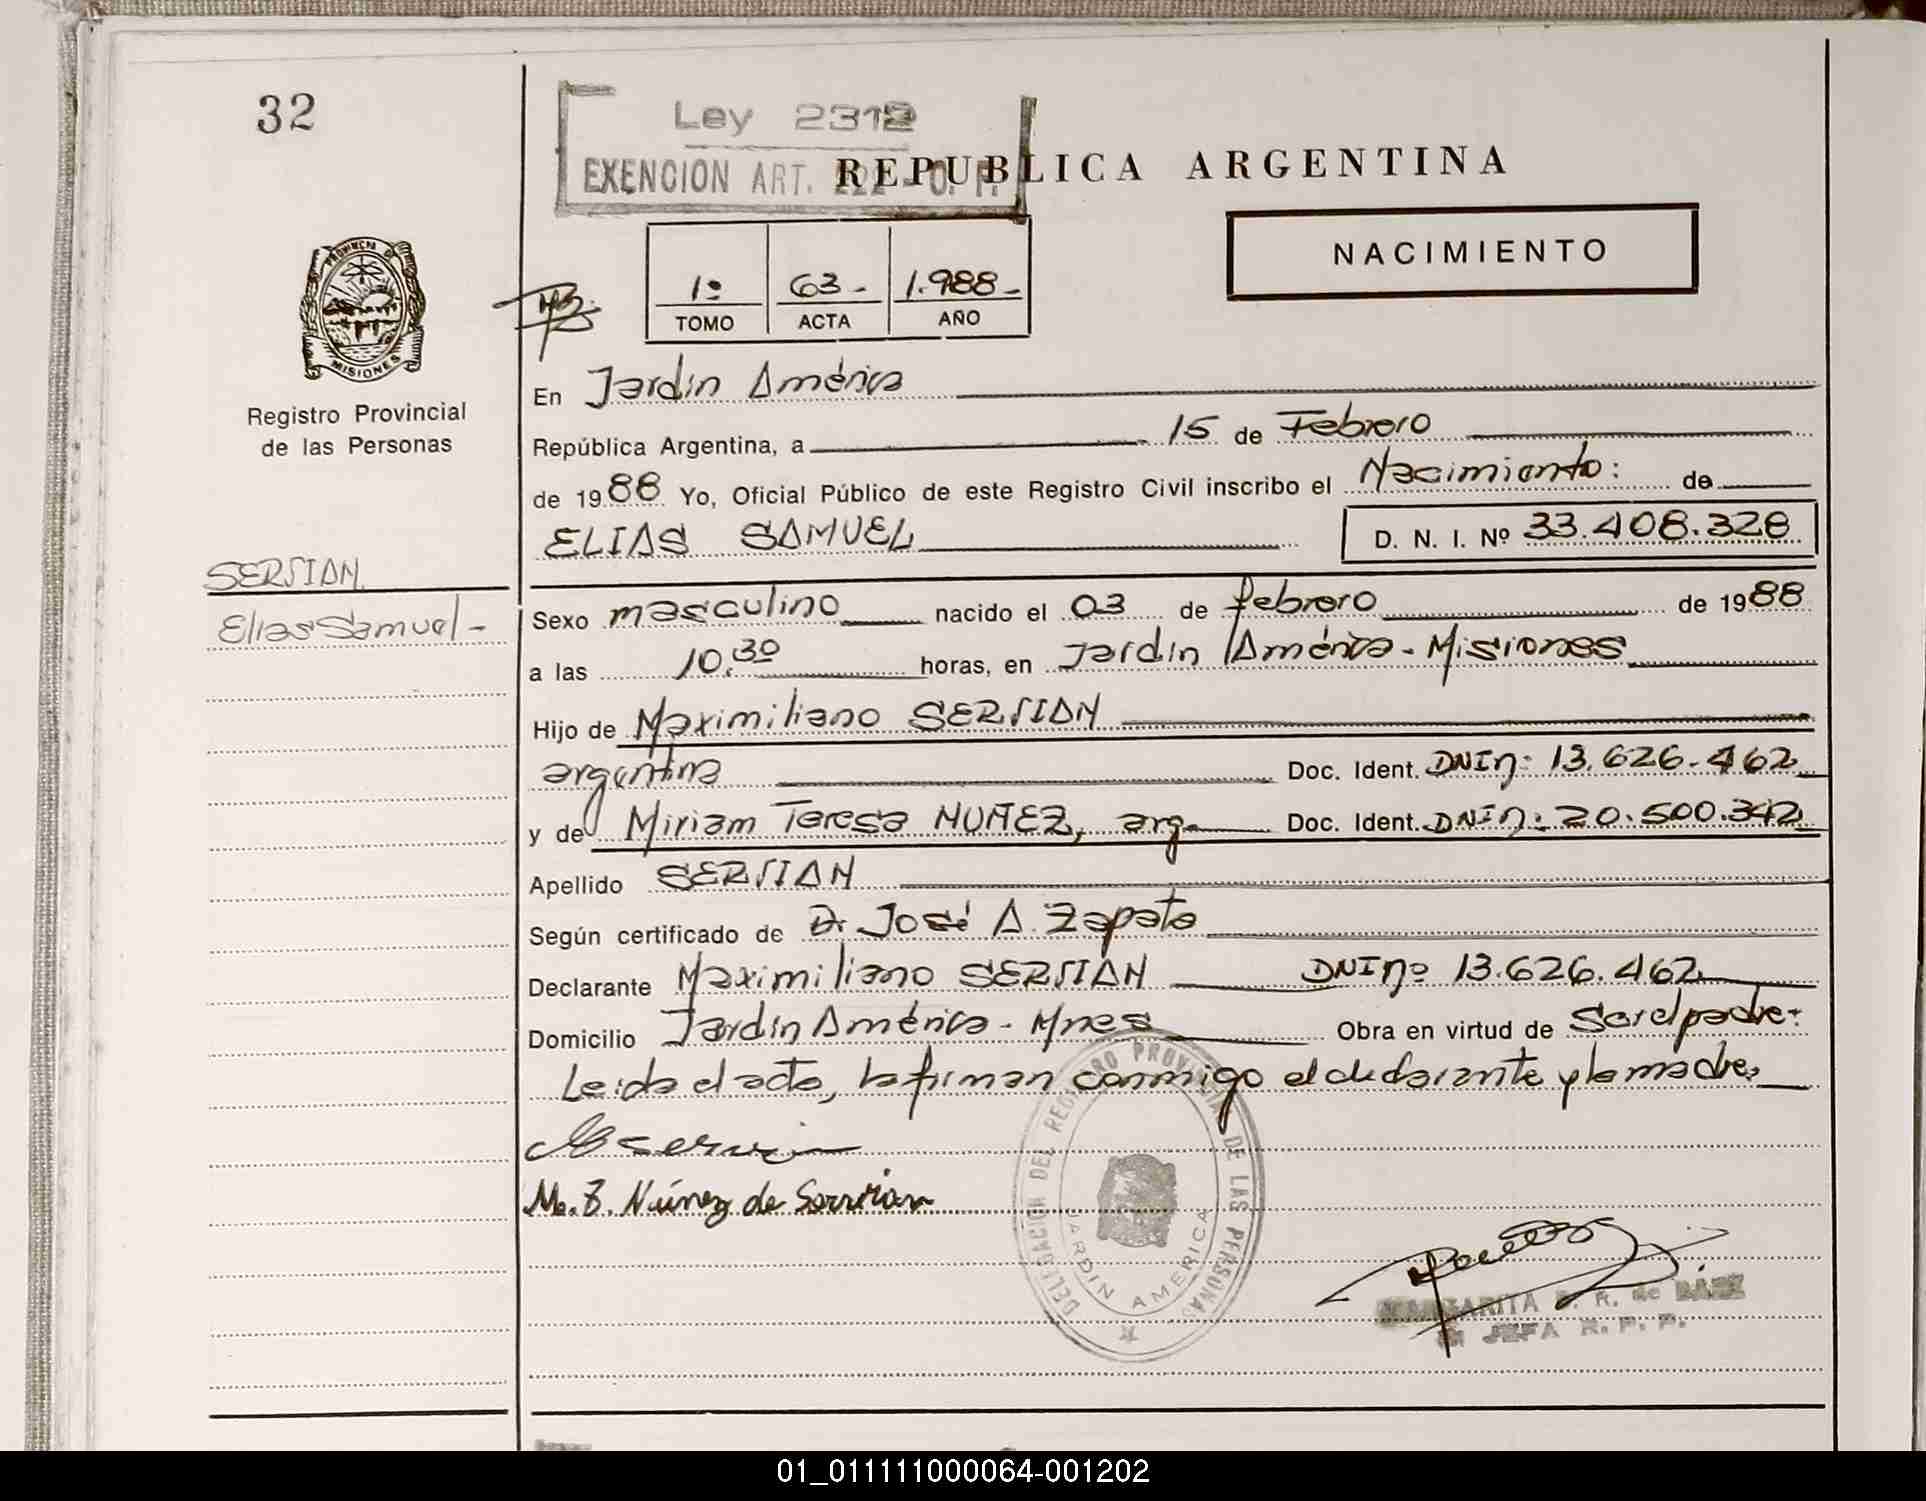 32
Ley 2312
EXENCION ART.
REPUBLICA ARGENTINA
NACIMIENTO
1º 63- 1.988-
TOMO ACTA AÑO
PROVINCIA DE MISIONES
Registro Provincial
de las Personas
En Jardin América
República Argentina, a 15 de Febrero
de 1988 Yo, Oficial Público de este Registro Civil inscribo el Nacimiento: de
ELIAS SAMUEL D. N. I. Nº 33.408.328
SERSIAN
Elias Samuel-
Sexo masculino nacido el 03 de febrero de 1988
a las 10:30 horas, en Jardin América - Misiones
Hijo de Maximiliano SERSIAN
argentina Doc. Ident. DNI nº: 13.626.462
y de Miriam Teresa NUÑEZ, arg. Doc. Ident. DNI nº: 20.500.342
Apellido SERSIAN
Según certificado de Dr José A. Zapata
Declarante Maximiliano SERSIAN DNI nº 13.626.462
Domicilio Jardin América - Mnes Obra en virtud de Ser el padre:
Leida el acta, la firman conmigo el declarante y la madre.
M. T. Núñez de Sersian
DELEGACION DEL REGISTRO PROVINCIAL DE LAS PERSONAS
JARDIN AMERICA
MARGARITA B. R. de BÁEZ
JEFA R. P. P.
01_011111000064-001202